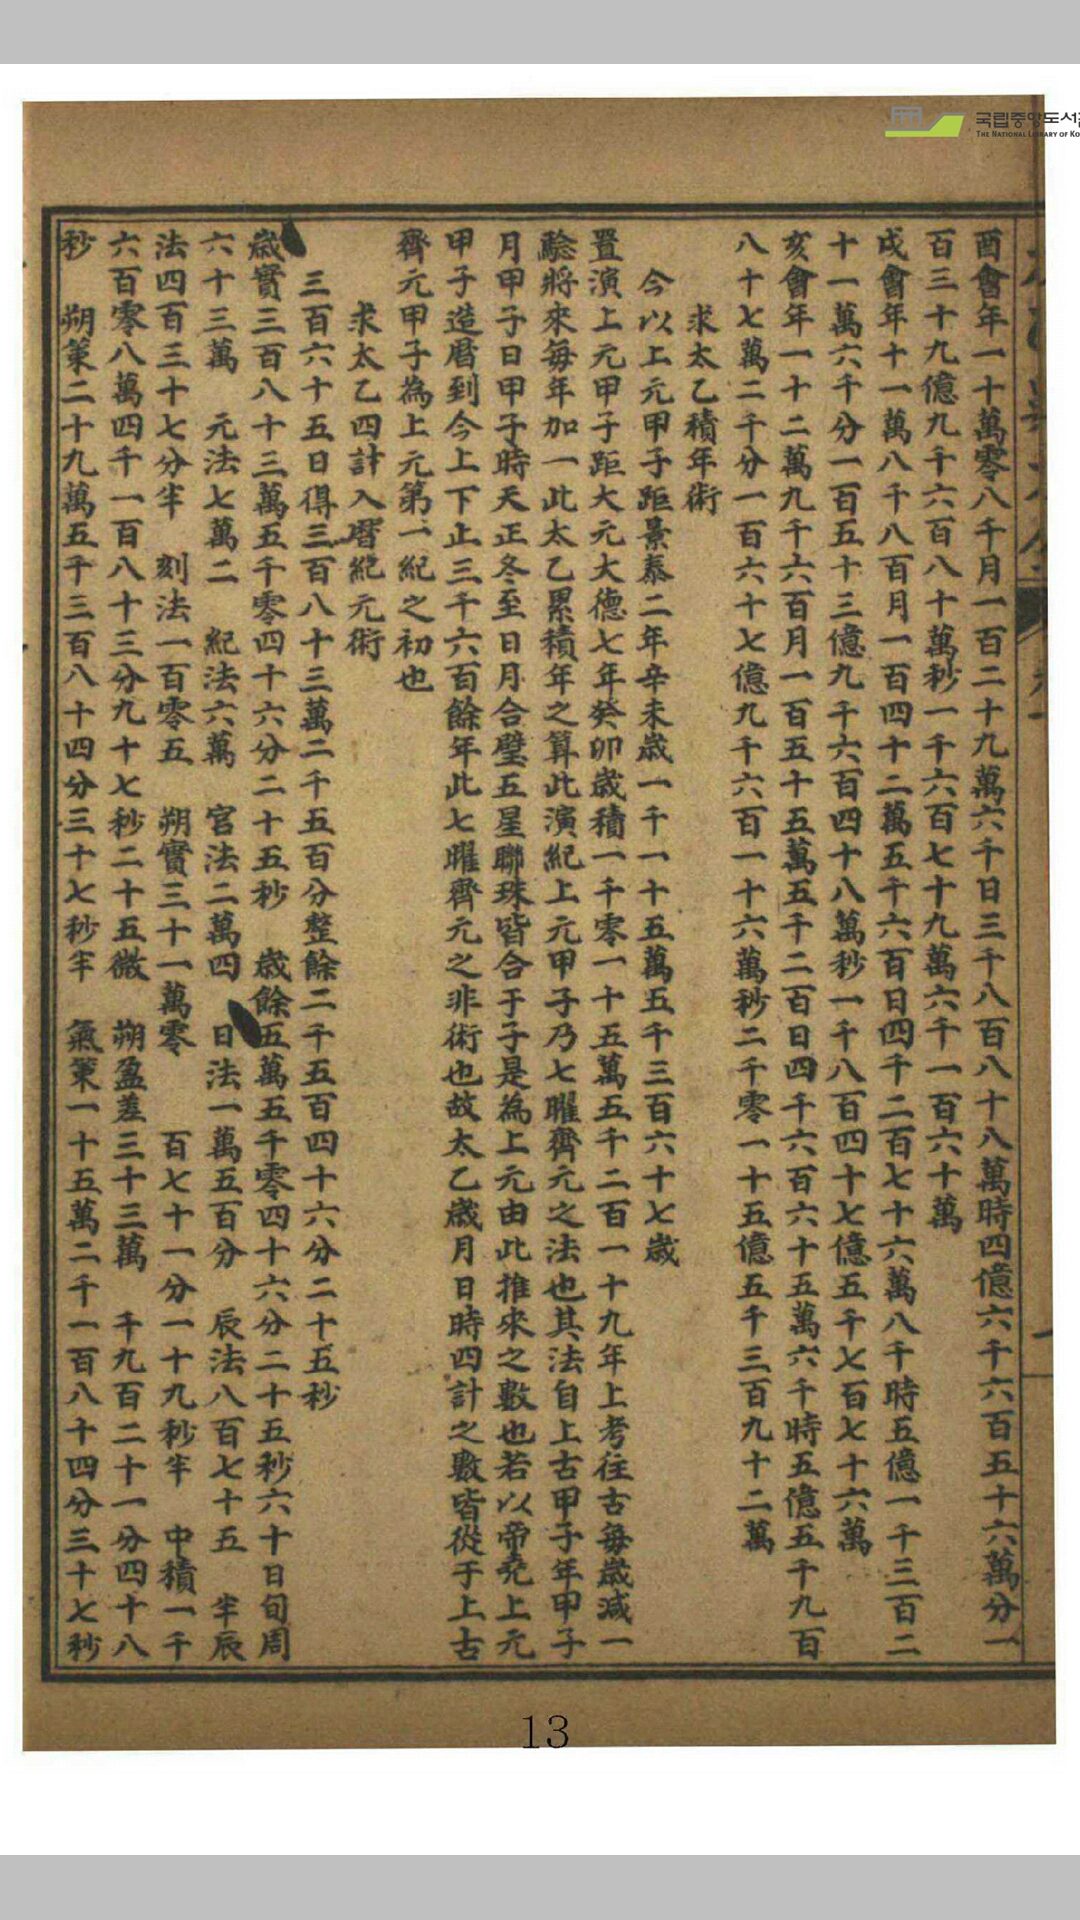 국립중앙도서
THE NATIONAL LIBRARY OF KO
酉會年一十萬零八千月一百二十九萬六千日三千八百八十八萬時四億六千六百五十六萬分一
百三十九億九千六百八十萬秒一千六百七十九萬六千一百六十萬
戌會年十一萬八千八百月一百四十二萬五千六百日四千二百七十六萬八千時五億一千三百二
十一萬六千分一百五十三億九千六百四十八萬秒一千八百四十七億五千七百七十六萬
亥會年一十二萬九千六百月一百五十五萬五千二百日四千六百六十五萬六千時五億五千九百
八十七萬二千分一百六十七億九千六百一十六萬秒二千零一十五億五千三百九十二萬
求太乙積年術
今以上元甲子距景泰二年辛未歲一千一十五萬五千三百六十七歲
置演上元甲子距大元大德七年癸卯歲積一千零一十五萬五千二百一十九年上考往古每歲減一
驗將來每年加一此太乙累積年之算此演紀上元甲子乃七曜齊元之法也其法自上古甲子年甲子
月甲子日甲子時天正冬至日月合璧五星聯珠皆合于子是為上元由此推來之數也若以帝堯上元
甲子造曆到今上下止三千六百餘年此七曜齊元之非術也故太乙歲月日時四計之數皆從于上古
齊元甲子為上元第一紀之初也
求太乙四計入曆紀元術
三百六十五日得三百八十三萬二千五百分整餘二千五百四十六分二十五秒
歲實三百八十三萬五千零四十六分二十五秒 歲餘五萬五千零四十六分二十五秒六十日旬周
六十三萬 元法七萬二 紀法六萬 宮法二萬四 日法一萬五百分 辰法八百七十五 半辰
法四百三十七分半 刻法一百零五 朔實三十一萬零 百七十一分一十九秒半 中積一千
六百零八萬四千一百八十三分九十七秒二十五微 朔盈差三十三萬 千九百二十一分四十八
秒 朔策二十九萬五千三百八十四分三十七秒半 氣策一十五萬二千一百八十四分三十七秒
13